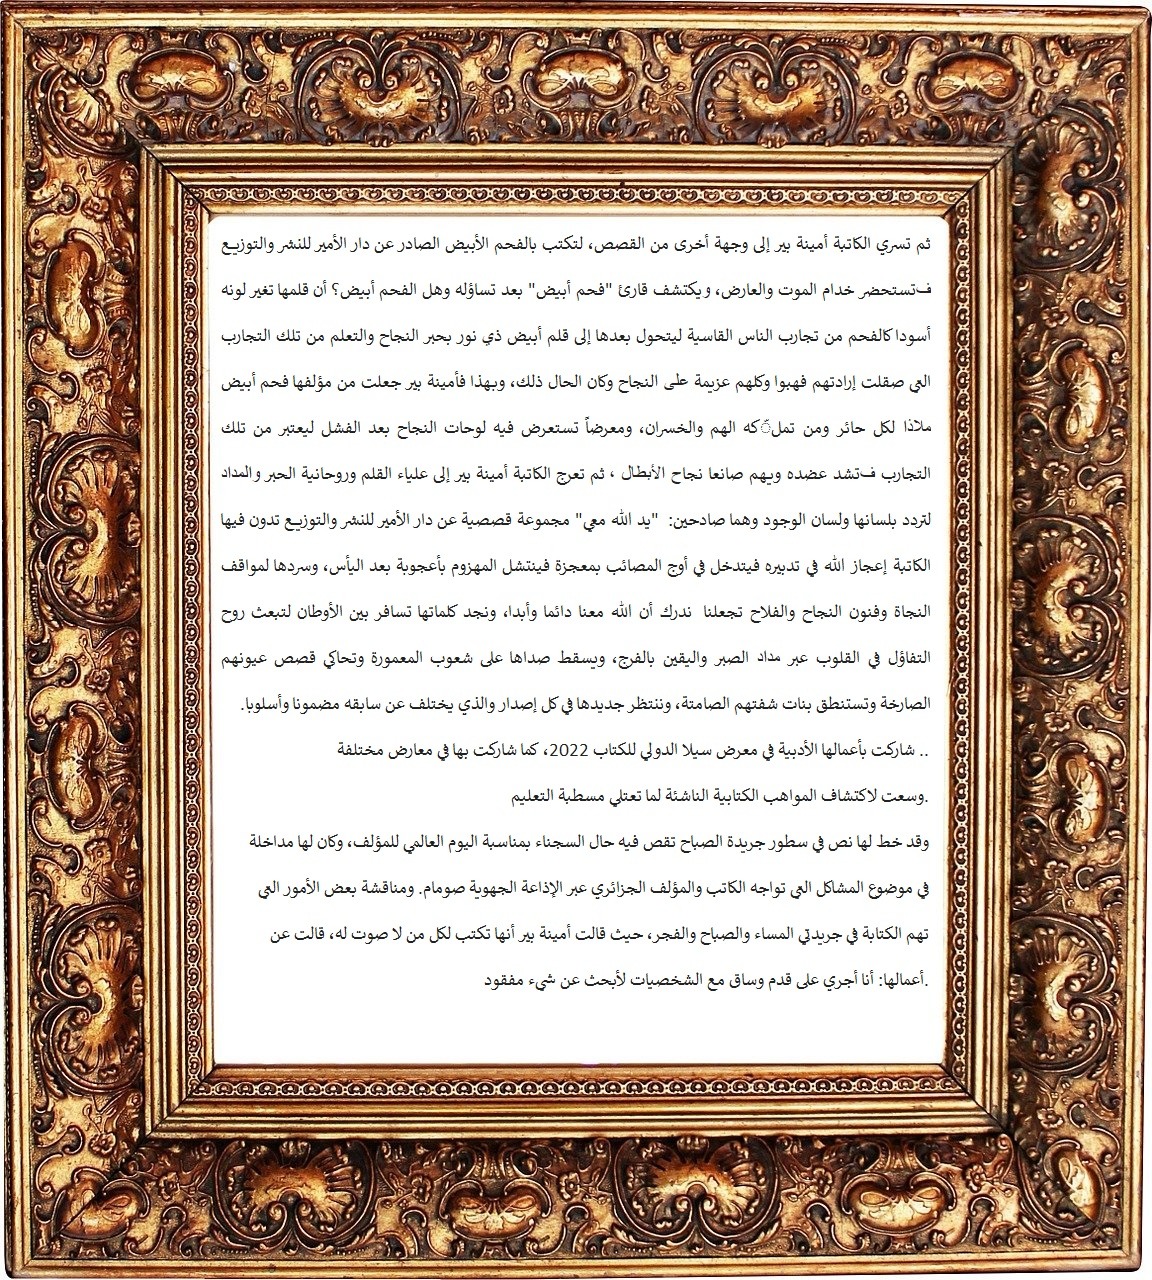 ثم تسري الكاتبة أمينة بير إلى وجهة أخرى من القصص، لتكتب بالفحم الأبيض الصادر عن دار الأمير للنشر والتوزيع
فتستحضر خدام الموت والعارض، ويكتشف قارئ "فحم أبيض" بعد تساؤله وهل الفحم أبيض؟ أن قلمها تغير لونه
أسودا كالفحم من تجارب الناس القاسية ليتحول بعدها إلى قلم أبيض ذي نور بحبر النجاح والتعلم من تلك التجارب
التي صقلت إرادتهم فهبوا وكلهم عزيمة على النجاح وكان الحال ذلك، وبهذا فأمينة بير جعلت من مؤلفها فحم أبيض
ملاذا لكل حائر ومن تملّكه الهم والخسران، ومعرضاً تستعرض فيه لوحات النجاح بعد الفشل ليعتبر من تلك
التجارب فتشد عضده وبهم صانعا نجاح الأبطال ، ثم تعرج الكاتبة أمينة بير إلى علياء القلم وروحانية الحبر والمداد
لتردد بلسانها ولسان الوجود وهما صادحين: "يد الله معي" مجموعة قصصية عن دار الأمير للنشر والتوزيع تدون فيها
الكاتبة إعجاز الله في تدبيره فيتدخل في أوج المصائب بمعجزة فينتشل المهزوم بأعجوبة بعد اليأس، وسردها لمواقف
النجاة وفنون النجاح والفلاح تجعلنا ندرك أن الله معنا دائما وأبدا، ونجد كلماتها تسافر بين الأوطان لتبعث روح
التفاؤل في القلوب عبر مداد الصبر واليقين بالفرج، ويسقط صداها على شعوب المعمورة وتحاكي قصص عيونهم
الصارخة وتستنطق بنات شفتهم الصامتة، وننتظر جديدها في كل إصدار والذي يختلف عن سابقه مضمونا وأسلوبا.
.. شاركت بأعمالها الأدبية في معرض سيلا الدولي للكتاب 2022، كما شاركت بها في معارض مختلفة
.وسعت لاكتشاف المواهب الكتابية الناشئة لما تعتلي مسطبة التعليم
وقد خط لها نص في سطور جريدة الصباح تقص فيه حال السجناء بمناسبة اليوم العالمي للمؤلف، وكان لها مداخلة
في موضوع المشاكل التي تواجه الكاتب والمؤلف الجزائري عبر الإذاعة الجهوية صومام. ومناقشة بعض الأمور التي
تهم الكتابة في جريدتي المساء والصباح والفجر، حيث قالت أمينة بير أنها تكتب لكل من لا صوت له، قالت عن
.أعمالها: أنا أجري على قدم وساق مع الشخصيات لأبحث عن شيء مفقود